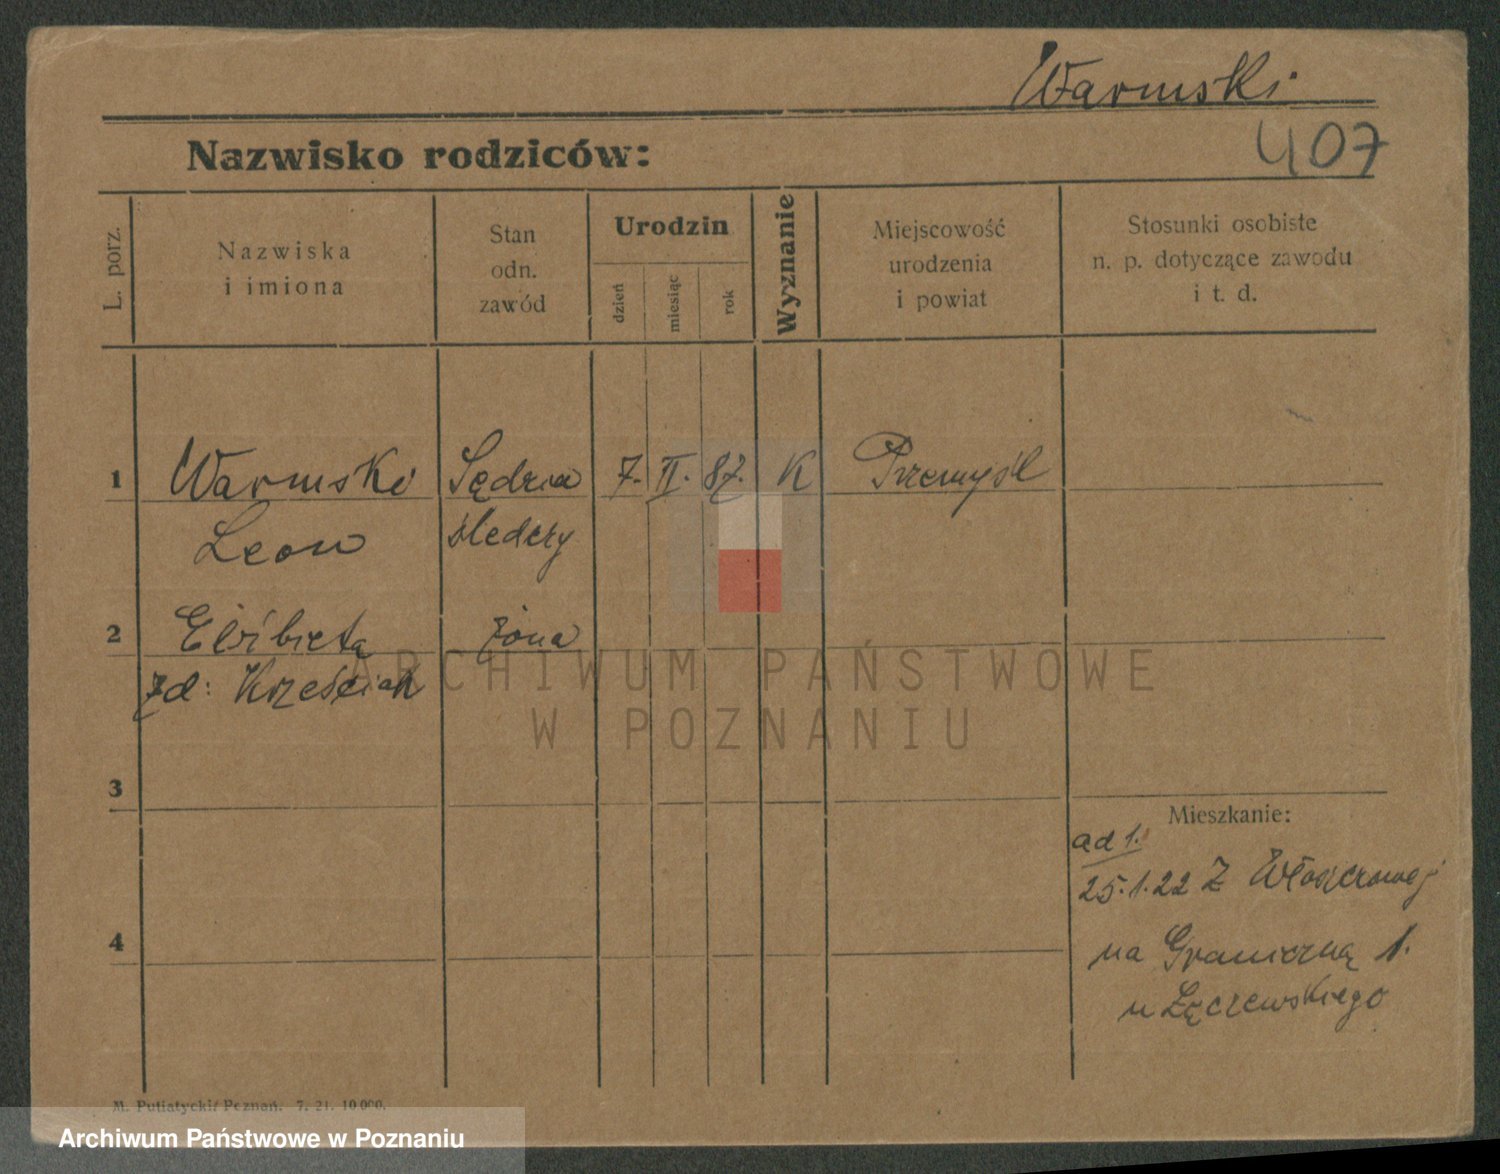 Warmski
407
Nazwisko rodziców:
L. porz.
Nazwiska
i imiona
Stan
odn.
zawód
Urodzin
dzień
miesiąc
rok
Wyznanie
Miejscowość
urodzenia
i powiat
Stosunki osobiste
n. p. dotyczące zawodu
i t. d.
1 Warmski Sędzia 7. II. 87. K Przemyśl
Leon śledczy
2 Elżbieta żona
zd: Krześciak
ARCHIWUM PAŃSTWOWE
W POZNANIU
3
Mieszkanie:
ad 1.
25.1.22 Z
4
na Graniczną 1.
u Łęczewskiego
M. Putiatycki Poznań. 7. 21. 10 000.
Archiwum Państwowe w Poznaniu